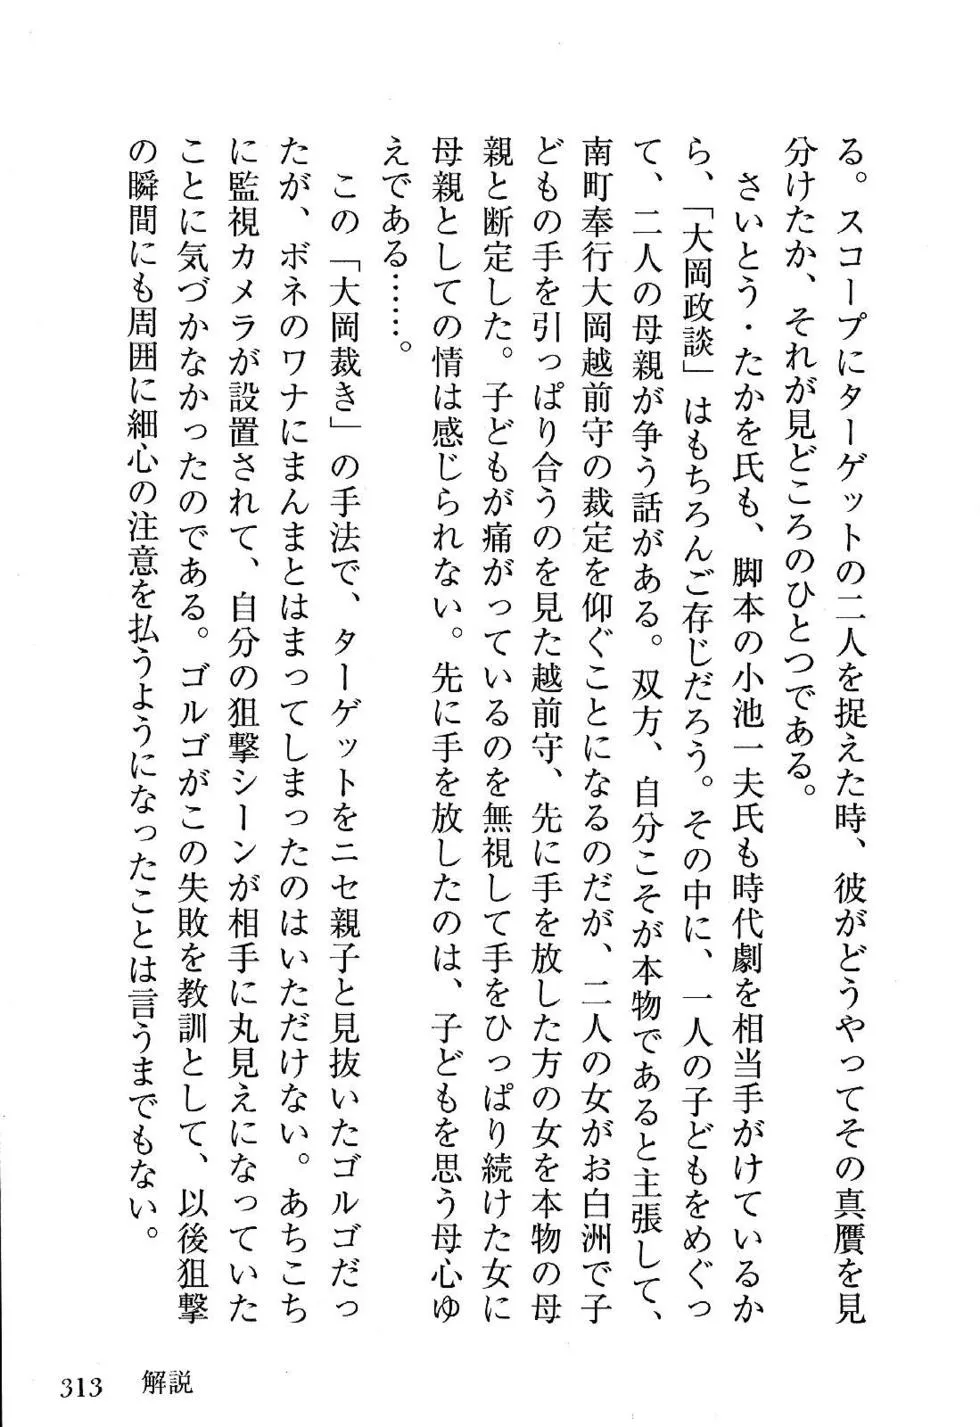 る。スコープにターゲットの二人を捉えた時、彼がどうやってその真贋を見
分けたか、それが見どころのひとつである。
さいとう・たかを氏も、脚本の小池一夫氏も時代劇を相当手がけているか
ら、「大岡政談」はもちろんご存じだろう。その中に、一人の子どもをめぐっ
て、二人の母親が争う話がある。双方、自分こそが本物であると主張して、
南町奉行大岡越前守の裁定を仰ぐことになるのだが、二人の女がお白洲で子
どもの手を引っぱり合うのを見た越前守、先に手を放した方の女を本物の母
親と断定した。子どもが痛がっているのを無視して手をひっぱり続けた女に
母親としての情は感じられない。先に手を放したのは、子どもを思う母心ゆ
えである……。
この「大岡裁き」の手法で、ターゲットをニセ親子と見抜いたゴルゴだっ
たが、ボネのワナにまんまとはまってしまったのはいただけない。あちこち
に監視カメラが設置されて、自分の狙撃シーンが相手に丸見えになっていた
ことに気づかなかったのである。ゴルゴがこの失敗を教訓として、以後狙撃
の瞬間にも周囲に細心の注意を払うようになったことは言うまでもない。
313 解説